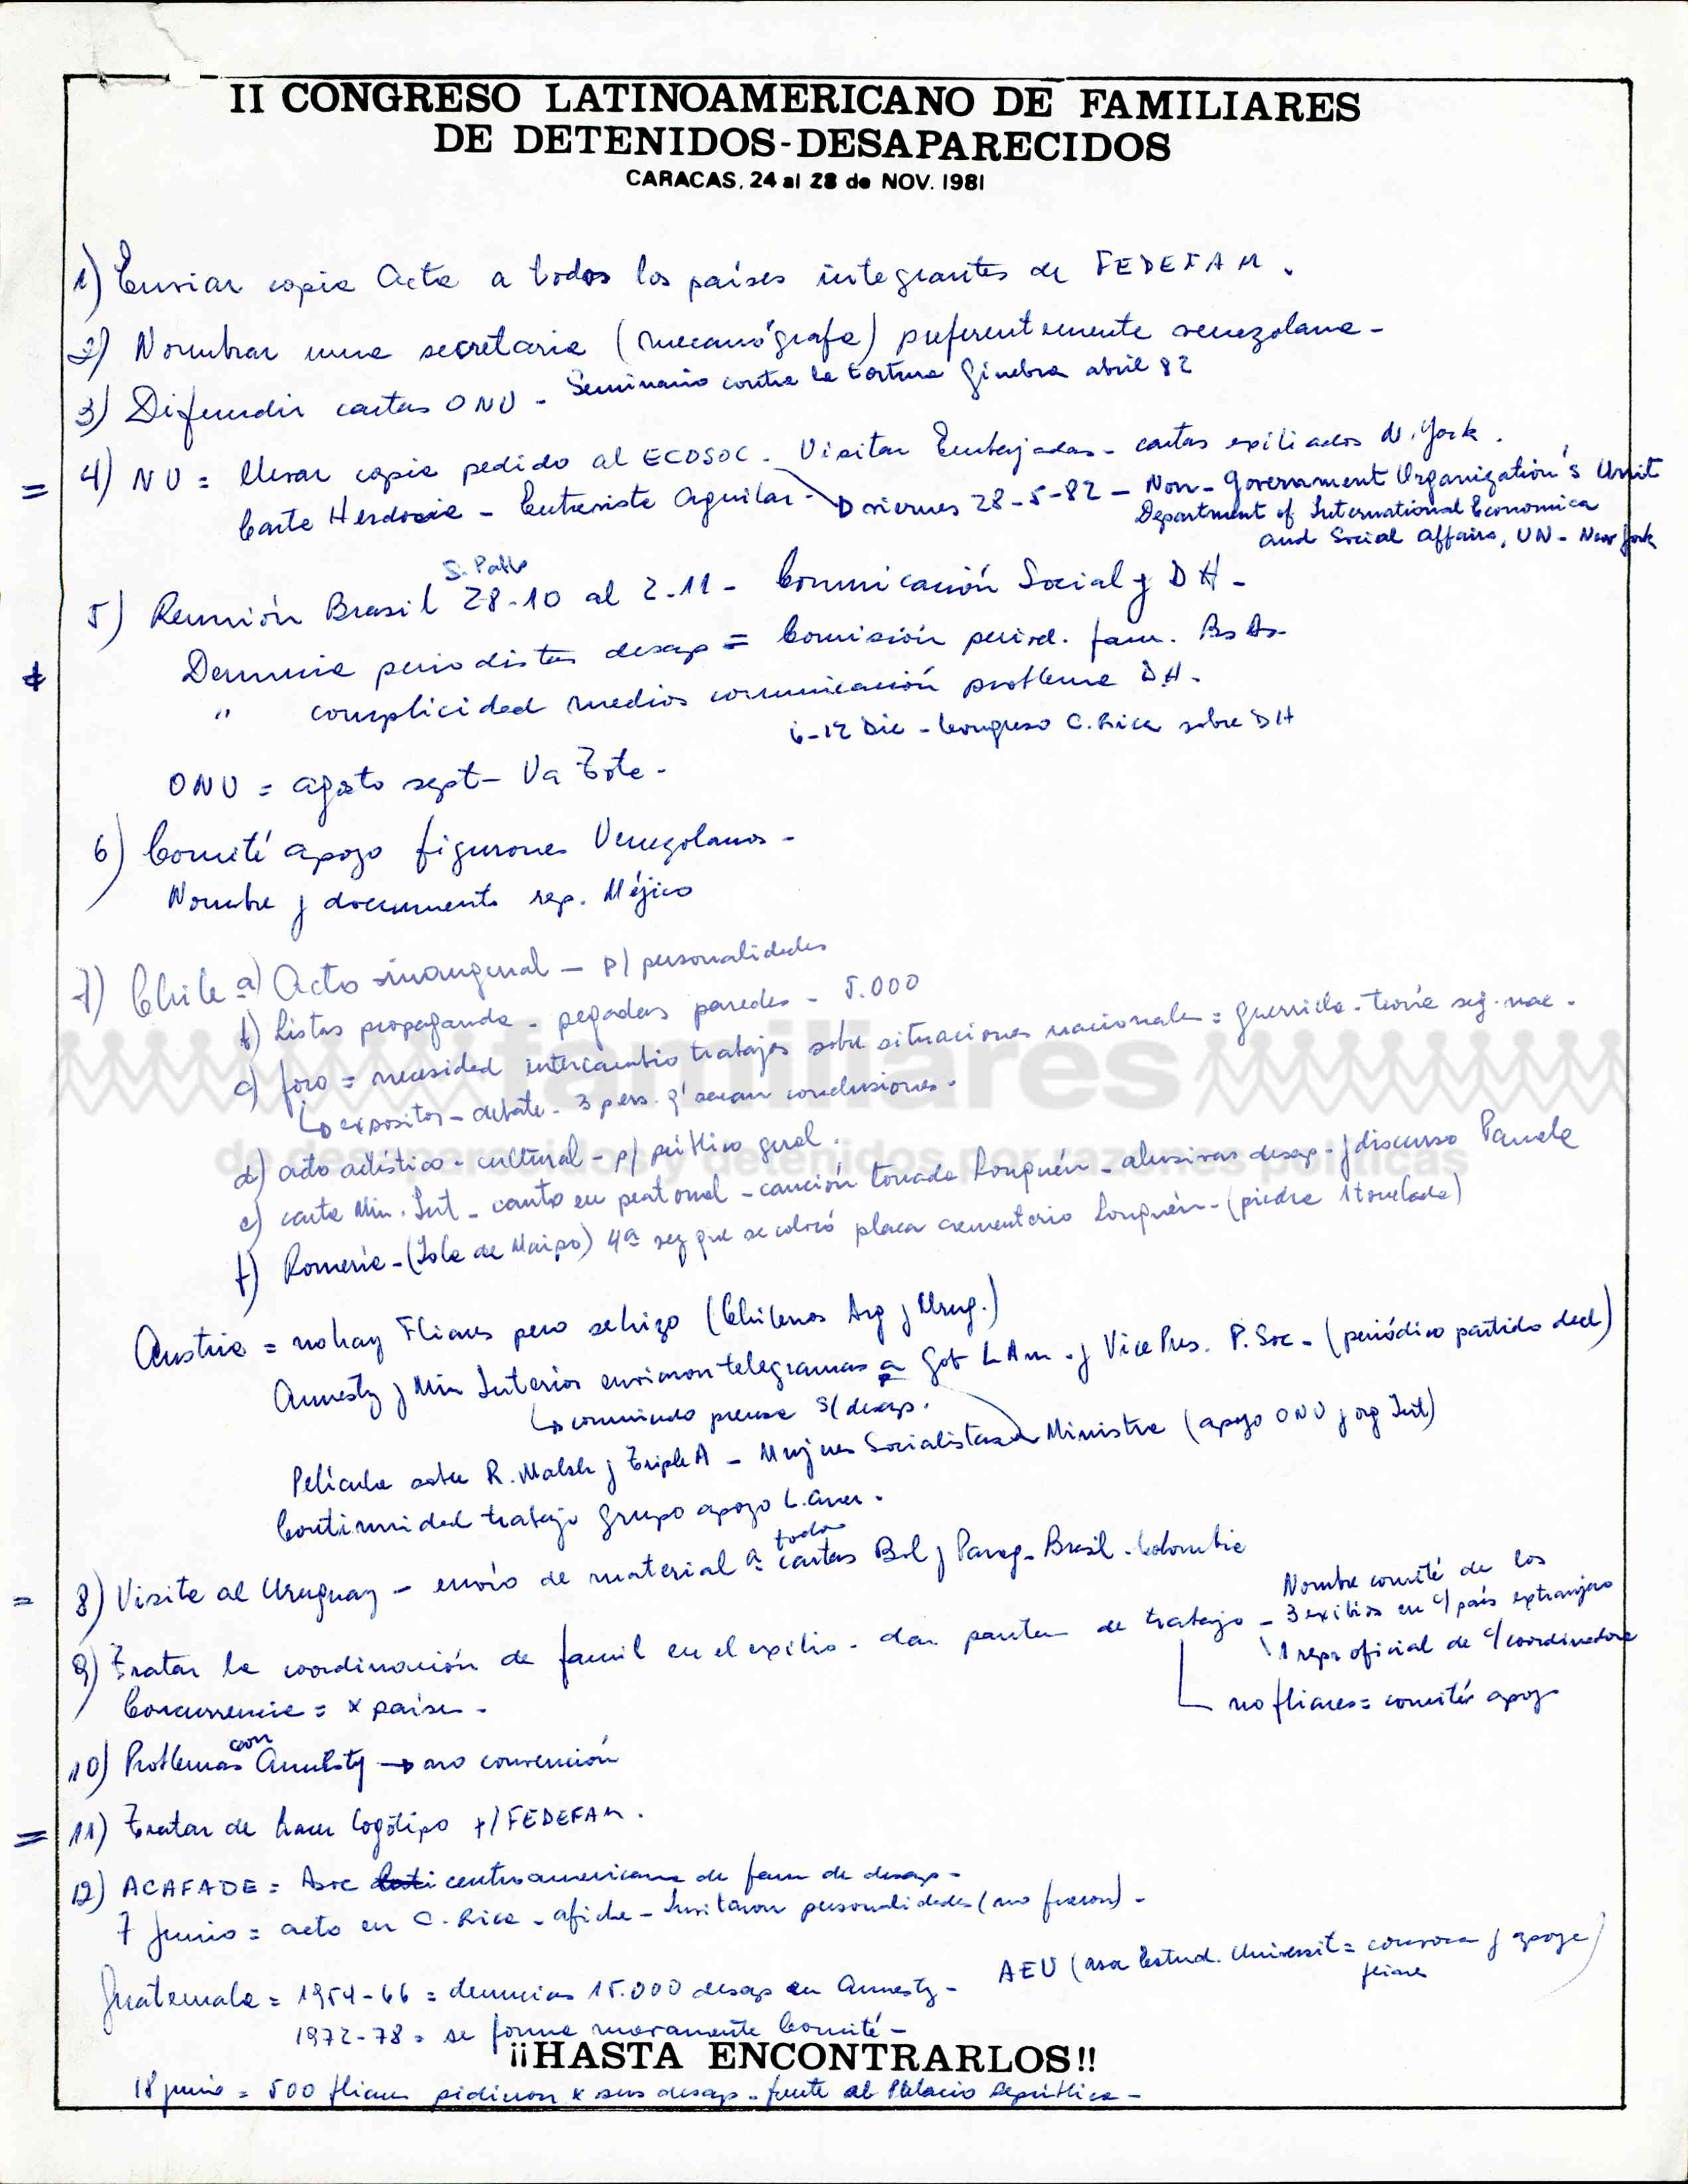 II CONGRESO LATINOAMERICANO DE FAMILIARES
DE DETENIDOS-DESAPARECIDOS
CARACAS, 24 al 28 de NOV. 1981
1) Enviar copia Acta a todos los países integrantes de FEDEFAM.
2) Nombrar una secretaria (mecanógrafa) preferentemente venezolana -
3) Difundir cartas ONU - Seminario contra la tortura Ginebra abril 82
= 4) NU = llevar copia pedido al ECOSOC. Visitar Embajadas - cartas exiliados N. York.
Carta Herdocia - Entrevista Aguilar - viernes 28-5-82 - Non-Government Organization's Unit
Department of International Economica
and Social Affairs, UN - New York
S. Pablo
5) Reunión Brasil 28-10 al 2-11 - Comunicación Social y DH -
Denuncia periodistas desap = Comisión period. fam. Bs As -
" complicidad medios comunicación problema DH.
6-12 Dic - Congreso C. Rica sobre DH
ONU = agosto sept - Va Tota -
6) Comité apoyo figurones Venezolanos -
Nombre y documento rep. Méjico
7) Chile a) Acto inaugural - p/ personalidades
b) Listas propaganda - pegadas paredes - 5.000
c) foro = necesidad intercambio trabajos sobre situaciones nacionales = guerrilla - teoría seg. nac.
expositor - debate - 3 pers. q' sacan conclusiones.
familiares
d) acto artístico - cultural - p/ público gral.
de desaparecidos y detenidos por razones políticas
e) carta Min. Int - canto en peatonal - canción tonada Lonquén - alusivas desap - y discurso Pamela
f) Romería - (Isla de Maipo) 4ª vez que se colocó placa cementerio Lonquén - (piedra 1 tonelada)
Austria = no hay Fliares pero se hizo (Chilenos Arg y Urug.)
Amnesty y Min Interior enviaron telegramas a Gob L Am. y Vice Pres. P. Soc - (periódico partido ded)
comunicado prensa s/ desap.
Película sobre R. Walsh y Triple A - Mujeres Socialistas Ministra (apoyo ONU y org Int)
Continuidad trabajo grupo apoyo L. Amer.
todos
= 8) Visita al Uruguay - envío de material a cartas Bol y Parag - Brasil - Colombia
Nombre comité de los
9) Tratar la coordinación de famil en el exilio - dar pautas de trabajo - 3 exilios en c/ país extranjero
1 repr oficial de c/ coordinadora
Concurrencia = x países - no fliares = comités apoyo
10) Problemas con Amnesty → no convención
= 11) Tratar de hacer logótipo p/ FEDEFAM.
12) ACAFADE = Asoc centroamericana de fam de desap -
7 Junio = acto en C. Rica - afiche - Invitaron personalidades (no fueron) -
Guatemala = 1954-66 = denuncias 15.000 desap en Amnesty - AEU (asoc Estud. Universit = convoca y apoya
fliares
1972-78 = se forma nuevamente Comité -
¡¡HASTA ENCONTRARLOS!!
18 junio = 500 fliares pidieron x sus desap - frente al Palacio República -